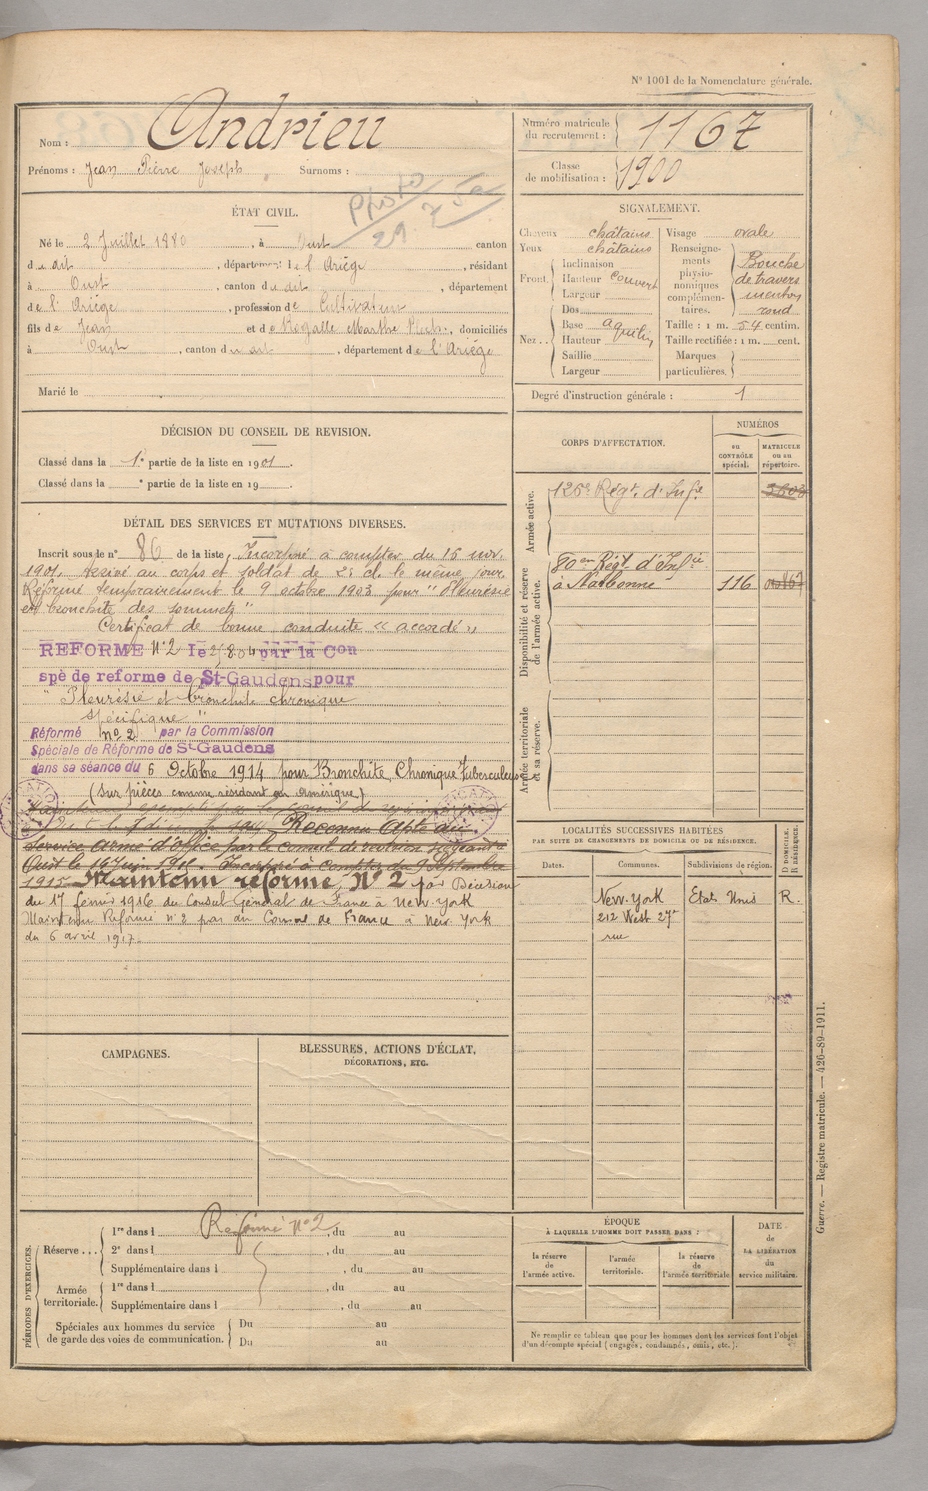 N° 1001 de la Nomenclature générale.
Nom : Andrieu
Prénoms : Jean Pierre Joseph Surnoms :
Numéro matricule du recrutement : 1167
Classe de mobilisation : 1900
ÉTAT CIVIL.
Né le 2 Juillet 1880, à Oust canton
du dit, département de l'Ariège, résidant
à Oust, canton du dit, département
de l'Ariège, profession de Cultivateur
fils de Jean et de Rogalle Marthe, domiciliés
à Oust, canton du dit, département de l'Ariège
Marié le
SIGNALEMENT.
Cheveux châtains
Yeux châtains
Front Inclinaison
Hauteur couvert
Largeur
Nez Dos
Base aquilin
Hauteur
Saillie
Largeur
Visage ovale
Renseignements physionomiques complémentaires. Bouche de travers menton rond
Taille : 1 m. 54 centim.
Taille rectifiée : 1 m. cent.
Marques particulières.
Degré d'instruction générale : 1
DÉCISION DU CONSEIL DE REVISION.
Classé dans la 1e partie de la liste en 1901.
Classé dans la e partie de la liste en 19
DÉTAIL DES SERVICES ET MUTATIONS DIVERSES.
Inscrit sous le n° 86 de la liste, Incorporé à compter du 16 nov.
1901. Arrivé au corps et soldat de 2e cl. le même jour.
Réformé temporairement le 9 octobre 1903 pour "Pleurésie
et bronchite des sommets"
Certificat de bonne conduite « accordé »
REFORME N°2 le par la Con
spé de reforme de St-Gaudens pour
"Pleurésie et bronchite chronique
spécifique"
Réformé n° 2 par la Commission
Spéciale de Réforme de St-Gaudens
dans sa séance du 6 Octobre 1914 pour Bronchite Chronique Tuberculeuse
(sur pièces comme résidant en Amérique)
Reconnu Apte au
service armé d'office par le conseil de révision siégeant à
Oust le 16 Juin 1915. Incorporé à compter du 9 Septembre
1915 Maintenu réformé N° 2 par Décision
du 17 février 1916 du Consul Général de France à New York
Maintenu Réformé n° 2 par du Consul de France à New York
du 6 avril 1917.
CORPS D'AFFECTATION.
NUMÉROS
au CONTRÔLE spécial.
MATRICULE ou au répertoire.
Armée active.
126e Régt. d'Infie
Disponibilité et réserve de l'armée active.
80em Régt d'Infie
à Narbonne 116
Armée territoriale et sa réserve.
LOCALITÉS SUCCESSIVES HABITÉES
PAR SUITE DE CHANGEMENTS DE DOMICILE OU DE RÉSIDENCE.
Dates. Communes. Subdivisions de région. D DOMICILE. R RÉSIDENCE.
New-York Etats Unis R.
212 West 27e
rue
CAMPAGNES.
BLESSURES, ACTIONS D'ÉCLAT,
DÉCORATIONS, ETC.
PÉRIODES D'EXERCICES.
Réserve... 1re dans l Réformé N°2, du au
2e dans l, du au
Supplémentaire dans l, du au
Armée territoriale. 1re dans l, du au
Supplémentaire dans l, du au
Spéciales aux hommes du service Du au
de garde des voies de communication. Du au
ÉPOQUE
À LAQUELLE L'HOMME DOIT PASSER DANS :
la réserve de l'armée active.
l'armée territoriale.
la réserve de l'armée territoriale
DATE
de
LA LIBÉRATION
du
service militaire.
Ne remplir ce tableau que pour les hommes dont les services font l'objet
d'un décompte spécial (engagés, condamnés, omis, etc.).
Guerre. — Registre matricule. — 426-89-1911.